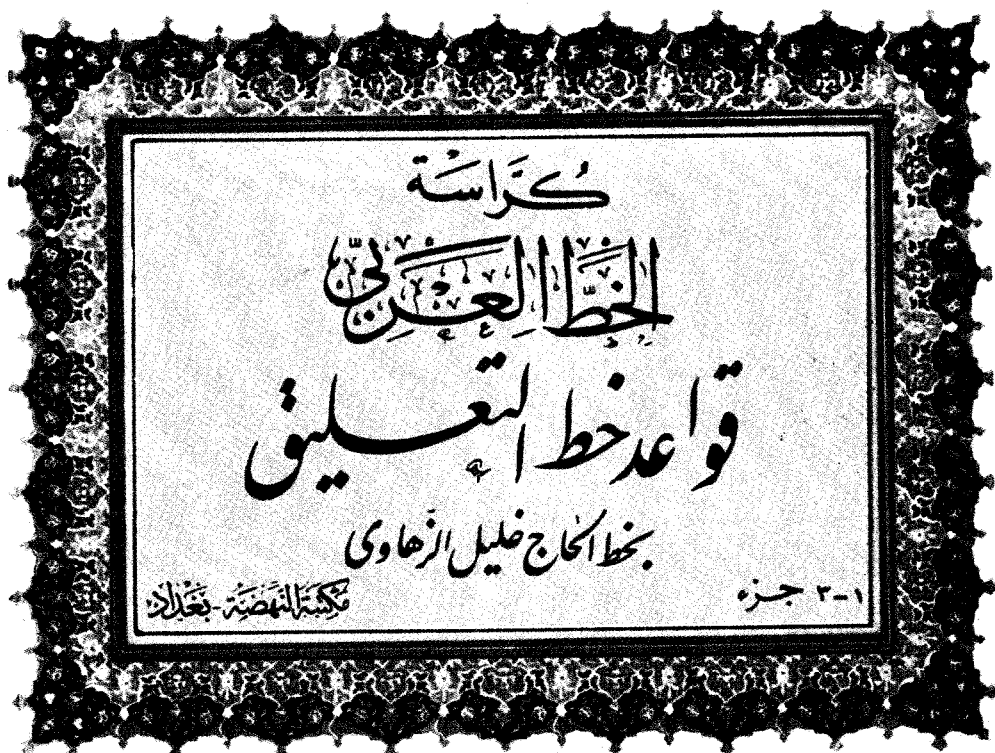 كُرَّاسَة
الخَطِّ العَرَبِيِّ
قواعد خط التعليق
بخط الحاج خليل الزهاوى
١-٣ جزء
مكتبة النهضة - بغداد